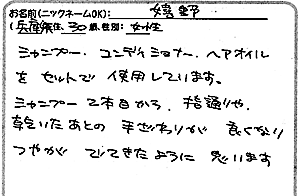 お名前(ニックネームOK): 嬉野
(兵庫県住、30歳、性別: 女性
シャンプー、コンディショナー、ヘアオイル
をセットで使用しています。
シャンプー2本目から、指通りや、
乾いたあとの手ざわりが良くなり
つやがでてきたように思います